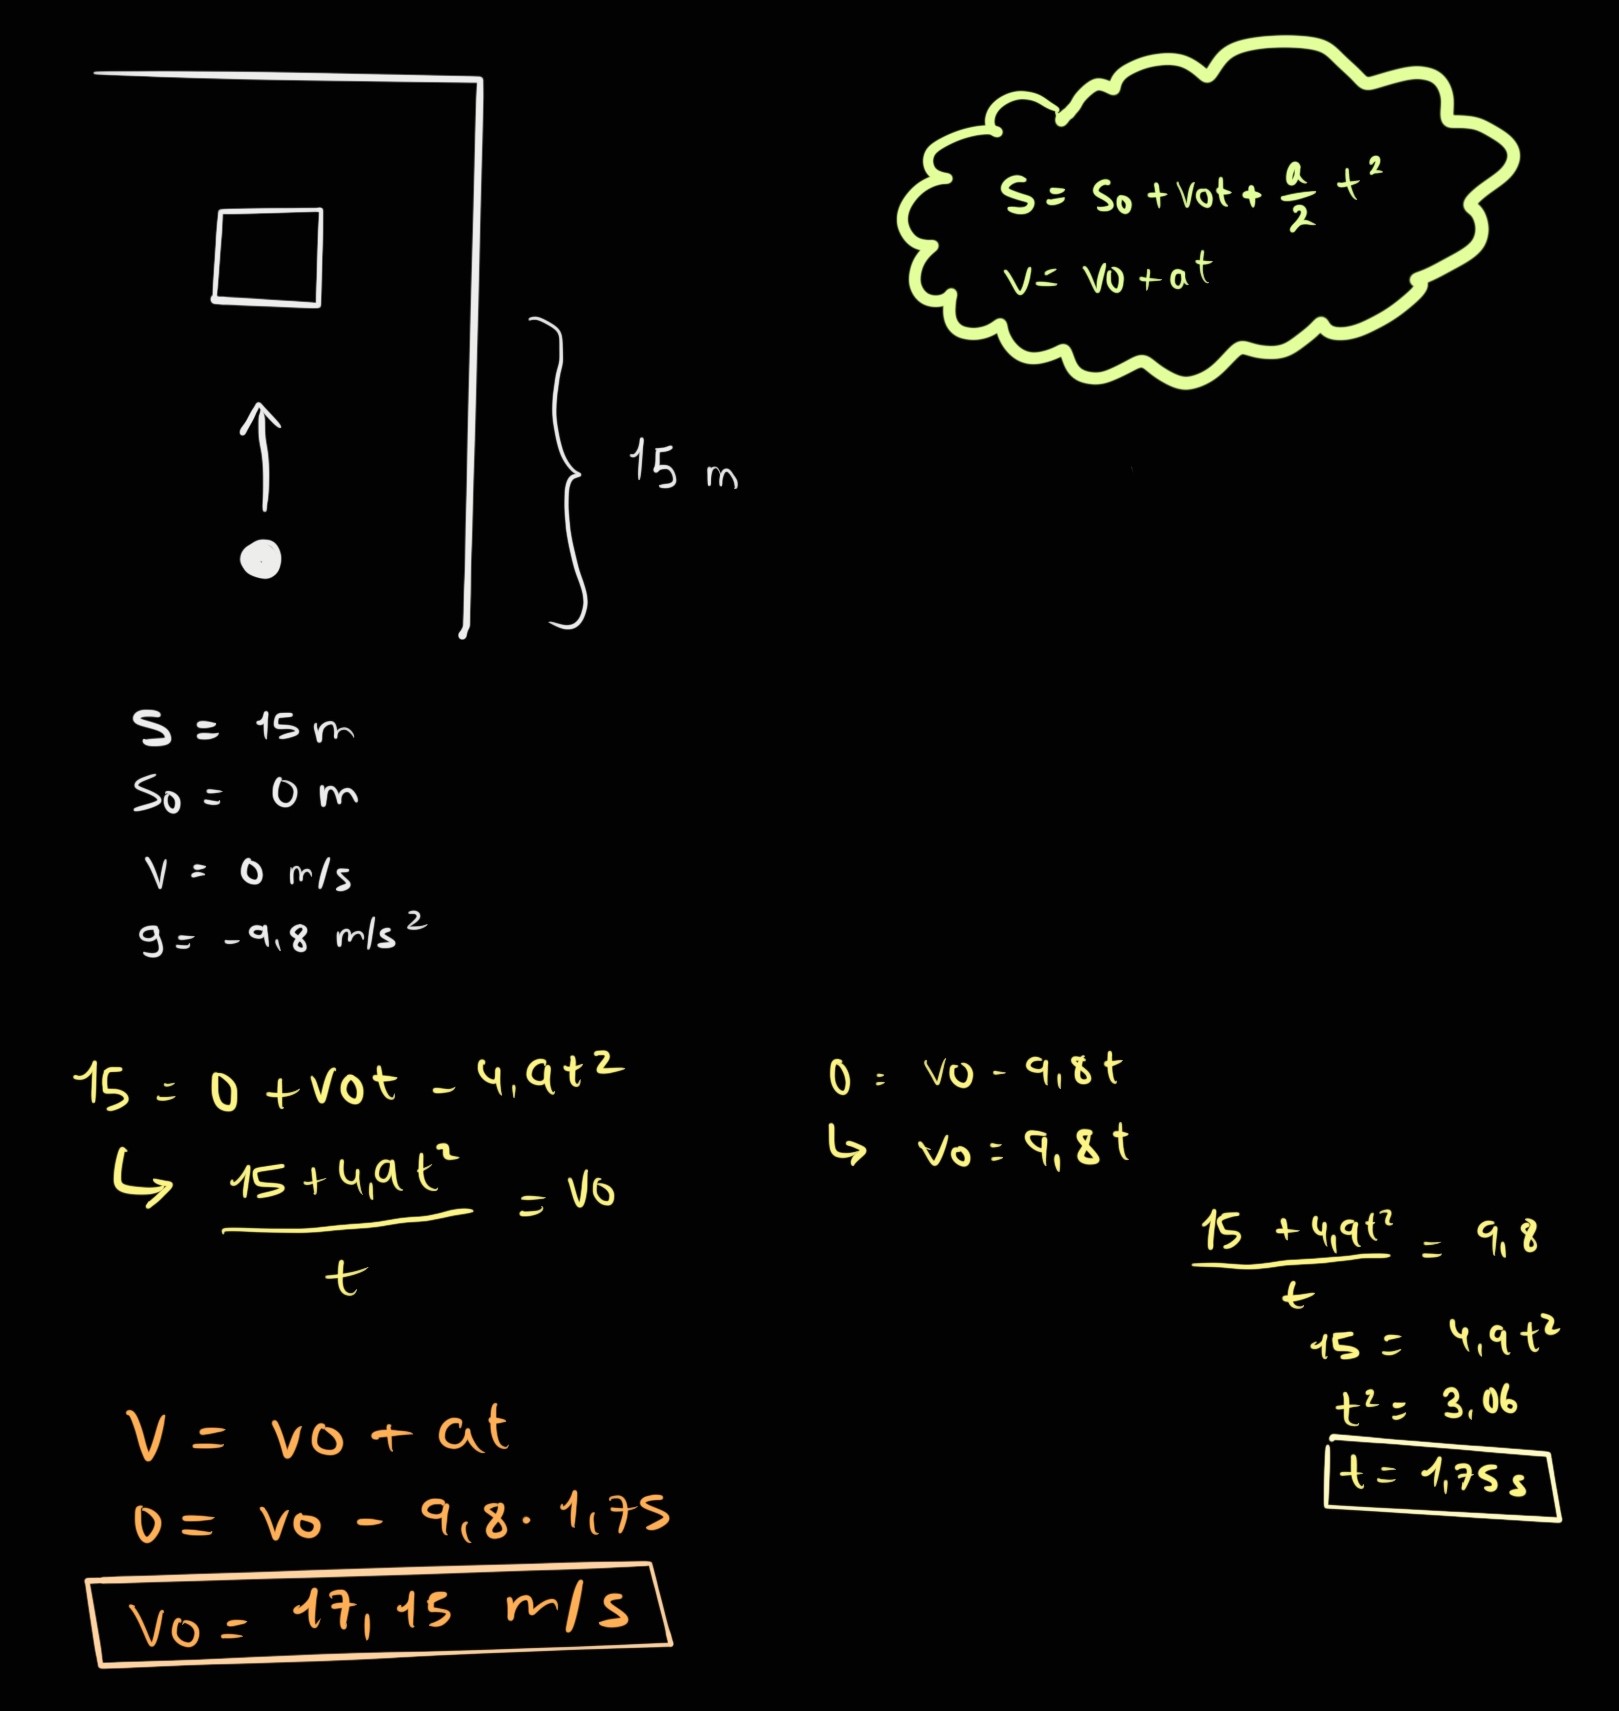 S = So + Vot + a/2 t²
V = Vo + at
15 m
S = 15 m
So = 0 m
V = 0 m/s
g = -9,8 m/s²
15 = 0 + Vot - 4,9t²
↳ (15 + 4,9t²)/t = Vo
0 = Vo - 9,8t
↳ Vo = 9,8t
(15 + 4,9t²)/t = 9,8
15 = 4,9t²
t² = 3,06
t = 1,75 s
V = Vo + at
0 = Vo - 9,8 · 1,75
Vo = 17,15 m/s